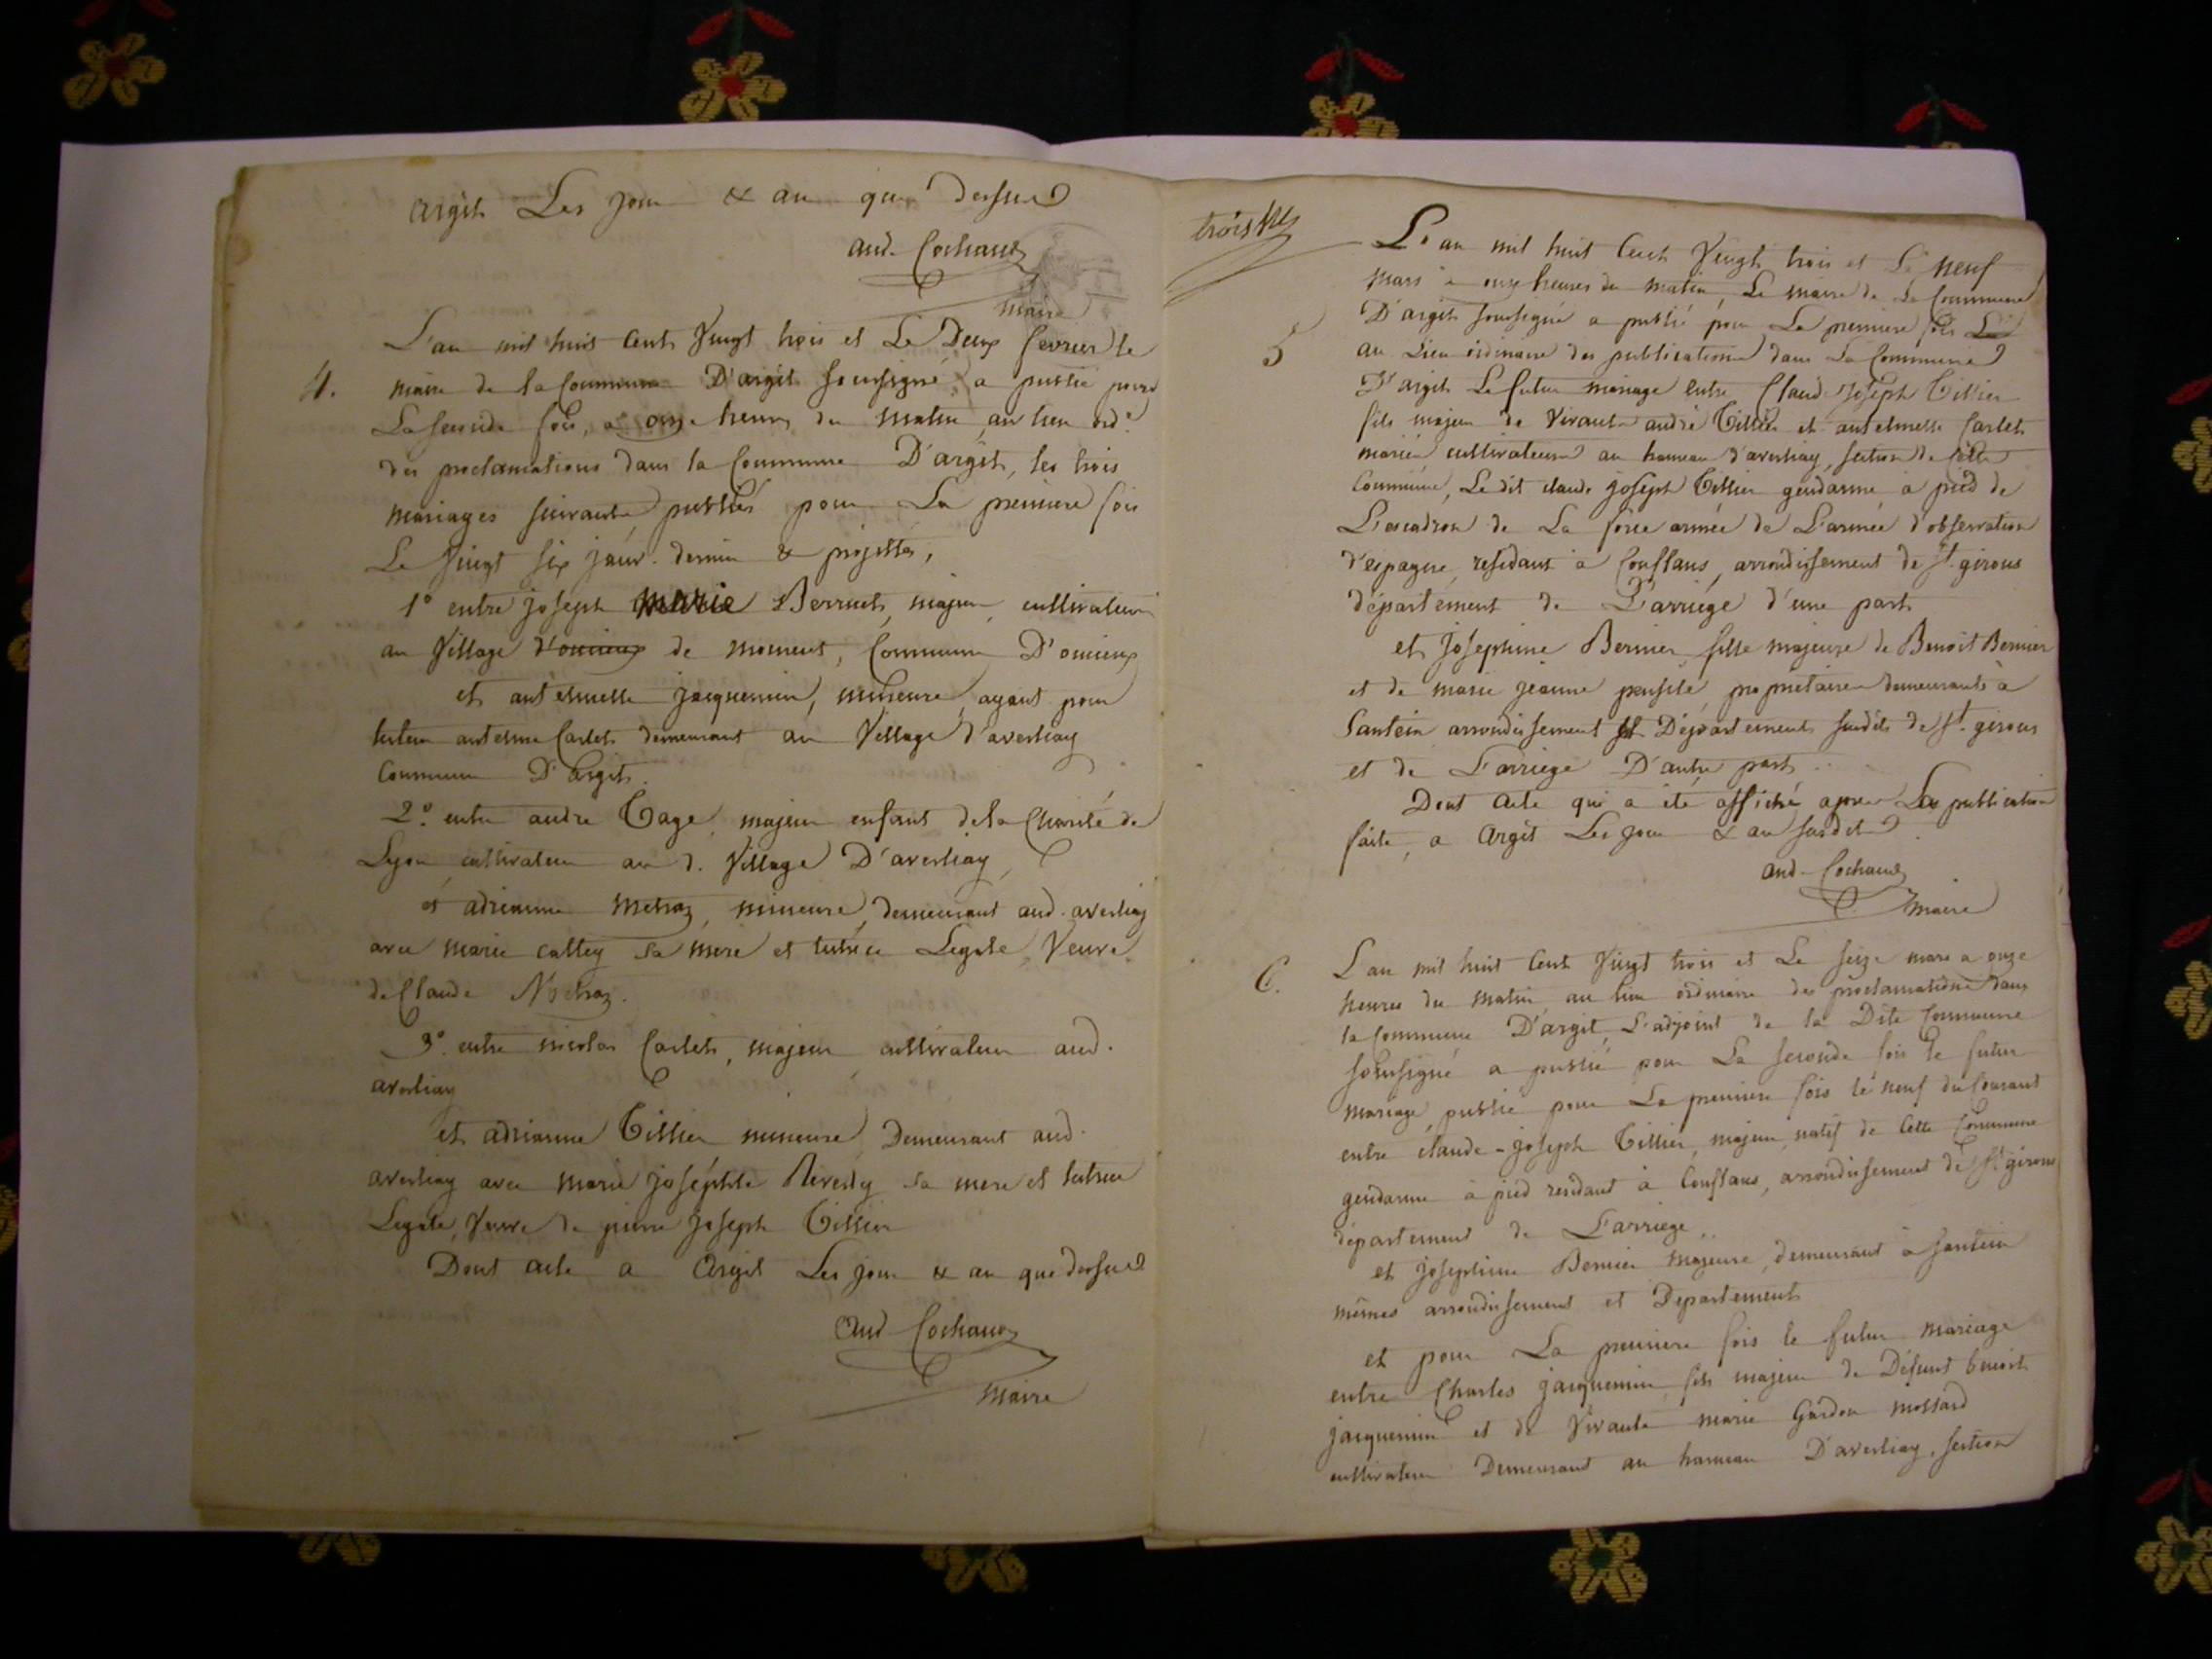 argit Les jour & an que dessus
and. Cochaud
maire
4.
L'an mil huit Cent Vingt trois et Le Deux fevrier le
maire de la Commune D'argit soussigné a publié pour
La seconde fois, a onze heures du matin au lieu ord.e
des proclamations dans la Commune D'argit, les trois
mariages suivants publiés pour La premiere fois
Le Vingt six janv. dernier & projettés,
1° entre joseph marie Berruet, majeur, cultivateur
au Village d'oncieux de momens, Commune D'oncieux
et antelmette jacquemin, mineure, ayant pour
tuteur antelme Carlet demeurant au Village d'averliay
Commune D'argit.
2° entre andré Tage, majeur enfant de la Charité de
Lyon cultivateur au d. Village D'averliay,
et adrianne metraz, mineure, demeurant aud. averliay
avec marie calley sa mere et tutrice Legale, Veuve
de Claude Metraz.
3° entre nicolas Carlet, majeur cultivateur aud.
averliay
et adrianne Tillier mineure Demeurant aud.
averliay avec marie josephte Reverdy sa mere et tutrice
Legale, Veuve de pierre joseph Tillier
Dont acte a argit Les jour & an que dessus
And Cochaud
maire
trois
5
L'an mil huit Cent Vingt trois et Le neuf
mars a onze heures du matin, Le maire de La Commune
D'argit soussigné a publié pour La premiere fois
au Lieu ordinaire des publications dans La Commune
D'argit Le futur mariage entre Claude Joseph Tillier
fils majeur de Vivants andré Tillier et antelmette Carlet
mariés cultivateurs au hameau d'averliay, section de cette
Commune, Le dit claude joseph Tillier gendarme a pied de
L'escadron de La force armée de L'armée d'observation
d'espagne, residant à Conflans, arrondissement de St. girons
département de L'arriége d'une part
et josephine Bernier fille majeure de Benoit Bernier
et de marie jeanne, proprietaires demeurants à
Santein arrondissement et Département susdits de St. girons
et de L'arriege D'autre part.
Dont acte qui a été affiché apres La publication
faite, a argit Les jour & an susdits
and. Cochaud
maire
6.
L'an mil huit Cent Vingt trois et Le seize mars a onze
heures du matin au lieu ordinaire des proclamations dans
la Commune D'argit, L'adjoint de la Dite Commune
soussigné a publié pour La seconde fois le futur
mariage, publié pour La premiere fois le neuf du Courant
entre claude-joseph Tillier, majeur, natif de Cette Commune
gendarme à pied residant à Conflans, arrondissement de St. girons
département de L'arriege
et josephine Bernier majeure, demeurant à santein
mêmes arrondissement et Departement
et pour La premiere fois le futur mariage
entre Charles jacquemin, fils majeur de Défunt benoit
jacquemin et de Vivante marie Gardon mossard
cultivateur Demeurant au hameau D'averliay, section